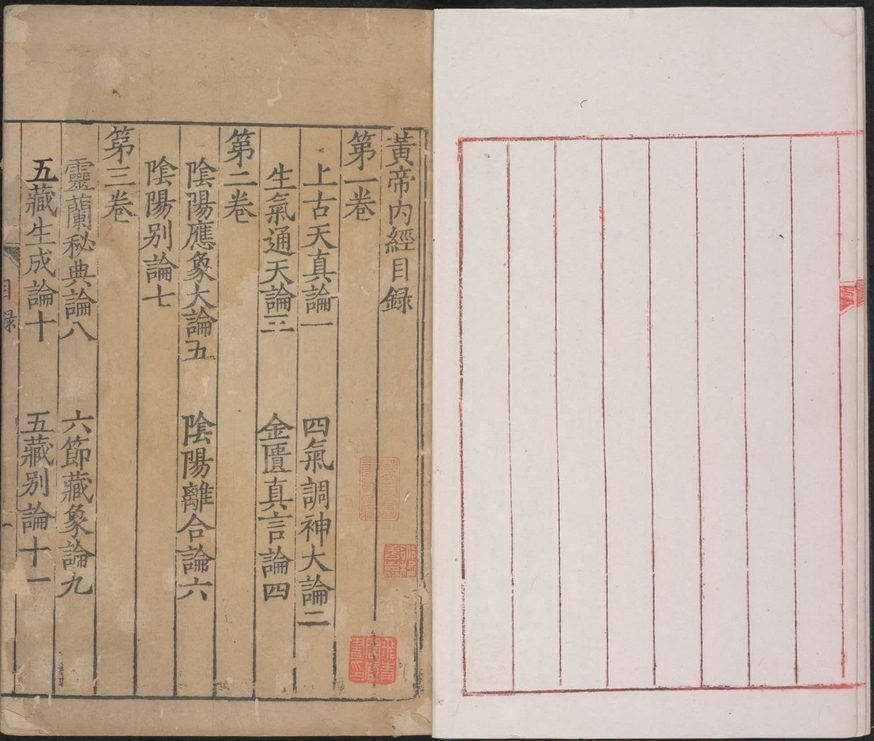 黃帝內經目録
第一卷
上古天真論一 四氣調神大論二
生氣通天論三 金匱真言論四
第二卷
陰陽應象大論五 陰陽離合論六
陰陽别論七
第三卷
靈蘭秘典論八 六節藏象論九
五藏生成論十 五藏别論十一
目録